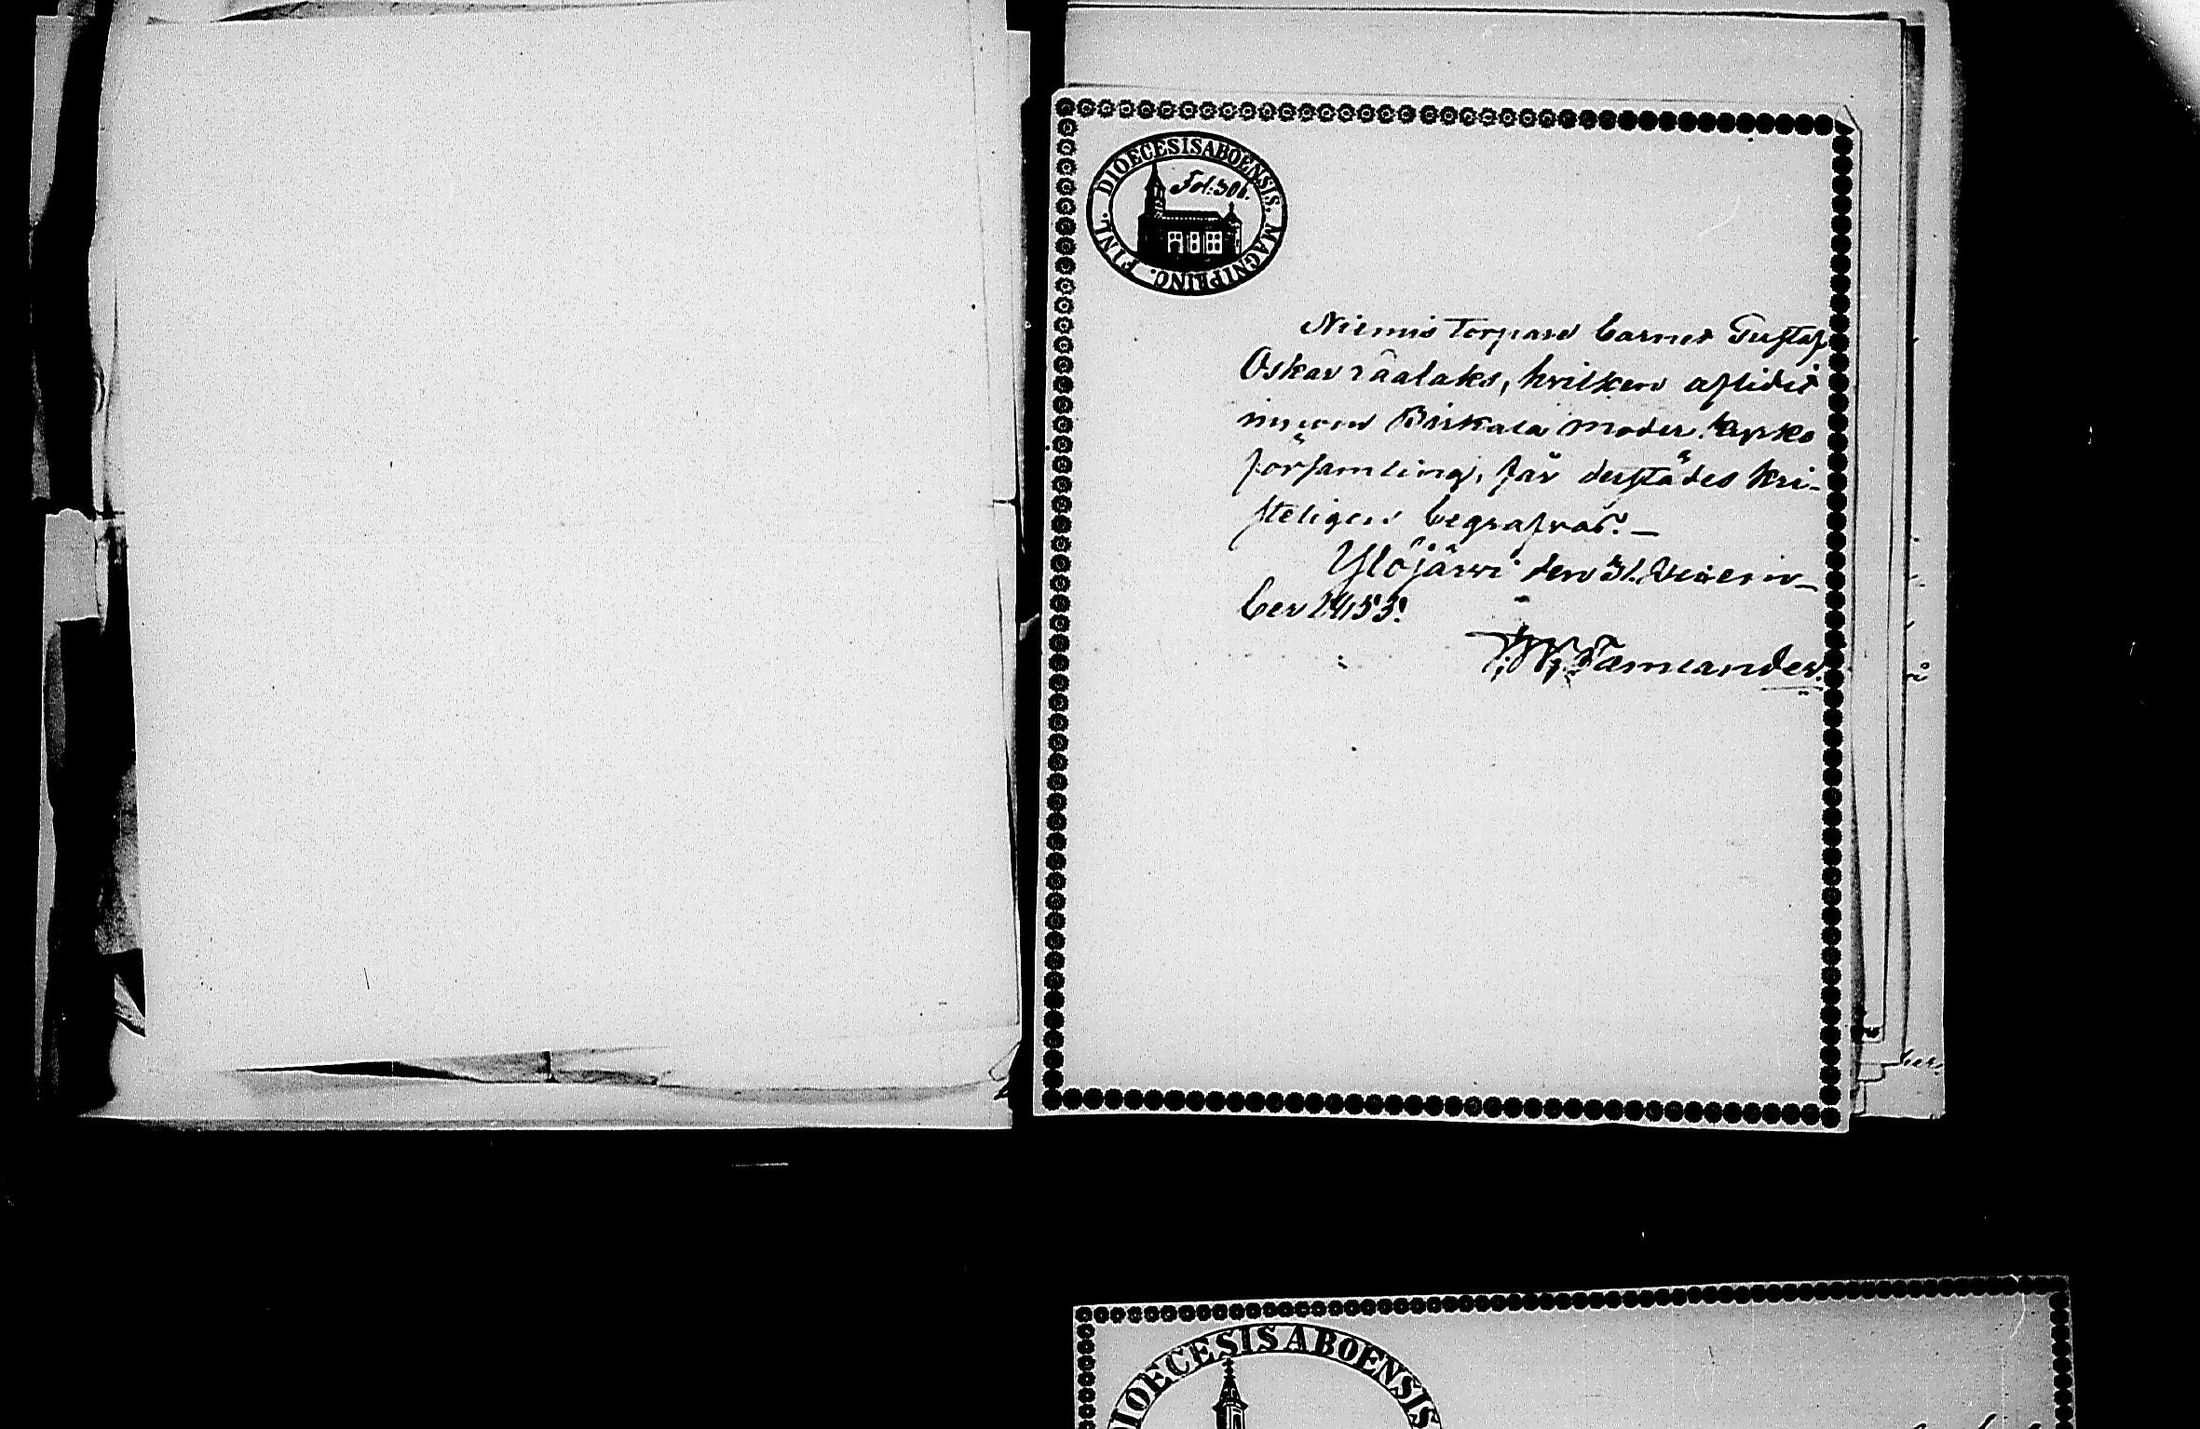 DIOECESIS ABOENSIS. MAGNI PRINC. FINL.
Fol: 306.
Niemis Torpare barnet Gustaf
Oskar Råalaks, hvilken aflidit
inom Birkala moder kyrko
församling, får derstädes kri-
steligen begrafvas. —
Ylöjärvi den 31. Decem-
ber 1855.
Tamlander.
DIOECESIS ABOENSIS